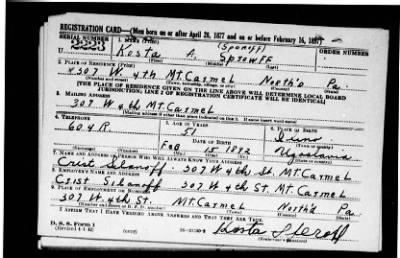 REGISTRATION CARD—(Men born on or after April 28, 1877 and on or before February 16, 1897)
SERIAL NUMBER
1. NAME (Print)
ORDER NUMBER
U 2223
(Sponoff)
Kosta A. Spiroff
(First) (Middle) (Last)
2. PLACE OF RESIDENCE (Print)
307 W 4th Mt. Carmel North'd Pa.
(Number and street) (Town, township, village, or city) (County) (State)
[THE PLACE OF RESIDENCE GIVEN ON THE LINE ABOVE WILL DETERMINE LOCAL BOARD
JURISDICTION; LINE 2 OF REGISTRATION CERTIFICATE WILL BE IDENTICAL]
3. MAILING ADDRESS
307 W 4th Mt. Carmel
[Mailing address if other than place indicated on line 2. If same insert word same]
4. TELEPHONE
5. AGE IN YEARS
6. PLACE OF BIRTH
604R
51
DATE OF BIRTH
(Town or county)
Feb 15 1892
Ugoslavia
(Mo.) (Day) (Yr.)
(State or country)
7. NAME AND ADDRESS OF PERSON WHO WILL ALWAYS KNOW YOUR ADDRESS
Crist Silanoff 307 W 4th St. Mt Carmel
8. EMPLOYER'S NAME AND ADDRESS
Crist Silanoff 307 W 4th St. Mt Carmel
9. PLACE OF EMPLOYMENT OR BUSINESS
307 W 4th St. Mt. Carmel North'd Pa
(Number and street or R. F. D. number) (Town) (County) (State)
I AFFIRM THAT I HAVE VERIFIED ABOVE ANSWERS AND THAT THEY ARE TRUE.
D. S. S. Form 1
(Revised 4-1-42) (over)
Kosta Speroff
(Registrant's signature)